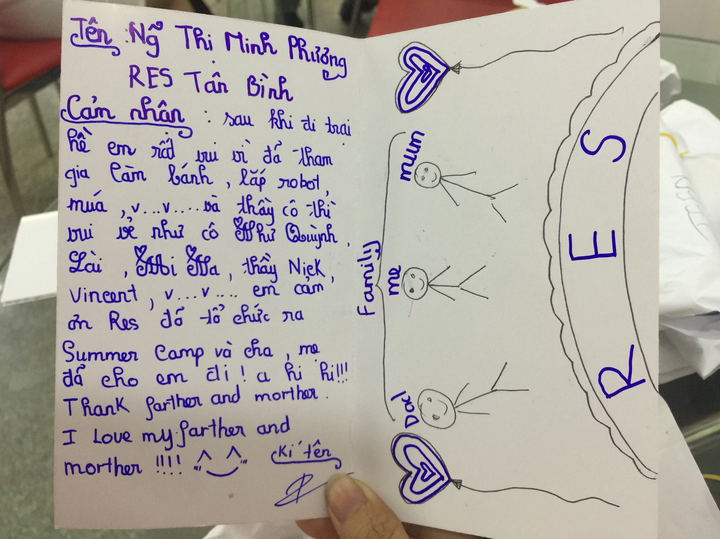 Tên : Ngỹ Thị Minh Phương
RES Tân Bình
Cảm nhận : sau khi đi trại
hè em rất vui vì đã tham
gia làm bánh , lắp robot,
múa , v...v.... và thầy cô thì
vui vẻ như cô Như Quỳnh ,
Lài , Mi Na , thầy Nick ,
Vincent , v....v.... em cảm
ơn Res đã tổ chức ra
Summer Camp và cha , mẹ
đã cho em đi ! a hi hi!!!
Thank farther and morther .
I Love my farther and
morther !!!! "^‿^"
Kí tên
Family
mum
me
Dad
RES